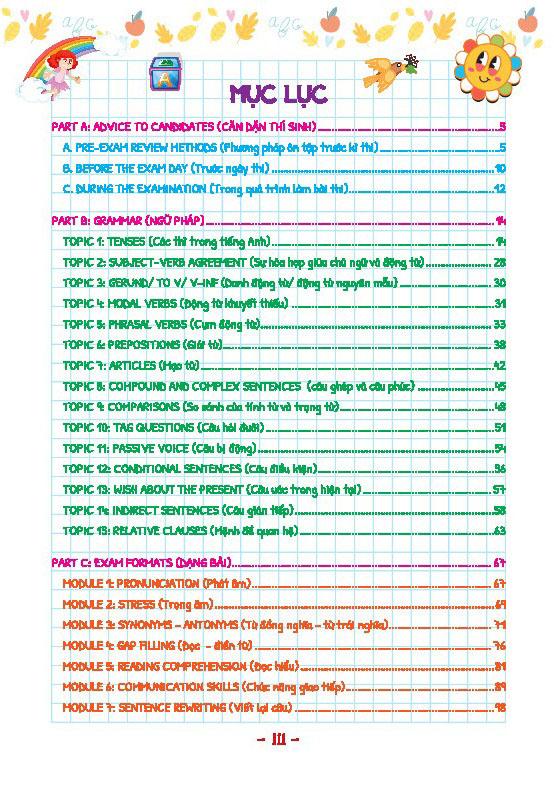 MỤC LỤC
PART A: ADVICE TO CANDIDATES (CĂN DẶN THÍ SINH) 5
A. PRE-EXAM REVIEW METHODS (Phương pháp ôn tập trước kì thi) 5
B. BEFORE THE EXAM DAY (Trước ngày thi) 10
C. DURING THE EXAMINATION (Trong quá trình làm bài thi) 12
PART B: GRAMMAR (NGỮ PHÁP) 14
TOPIC 1: TENSES (Các thì trong tiếng Anh) 14
TOPIC 2: SUBJECT-VERB AGREEMENT (Sự hòa hợp giữa chủ ngữ và động từ) 28
TOPIC 3: GERUND/ TO V/ V-INF (Danh động từ/ động từ nguyên mẫu) 30
TOPIC 4: MODAL VERBS (Động từ khuyết thiếu) 31
TOPIC 5: PHRASAL VERBS (Cụm động từ) 33
TOPIC 6: PREPOSITIONS (Giới từ) 38
TOPIC 7: ARTICLES (Mạo từ) 42
TOPIC 8: COMPOUND AND COMPLEX SENTENCES (câu ghép và câu phức) 45
TOPIC 9: COMPARISONS (So sánh của tính từ và trạng từ) 48
TOPIC 10: TAG QUESTIONS (Câu hỏi đuôi) 51
TOPIC 11: PASSIVE VOICE (Câu bị động) 54
TOPIC 12: CONDITIONAL SENTENCES (Câu điều kiện) 56
TOPIC 13: WISH ABOUT THE PRESENT (Câu ước trong hiện tại) 57
TOPIC 14: INDIRECT SENTENCES (Câu gián tiếp) 58
TOPIC 15: RELATIVE CLAUSES (Mệnh đề quan hệ) 63
PART C: EXAM FORMATS (DẠNG BÀI) 67
MODULE 1: PRONUNCIATION (Phát âm) 67
MODULE 2: STRESS (Trọng âm) 69
MODULE 3: SYNONYMS - ANTONYMS (Từ đồng nghĩa - từ trái nghĩa) 71
MODULE 4: GAP FILLING (Đọc - điền từ) 76
MODULE 5: READING COMPREHENSION (Đọc hiểu) 81
MODULE 6: COMMUNICATION SKILLS (Chức năng giao tiếp) 89
MODULE 7: SENTENCE REWRITING (Viết lại câu) 98
- III -